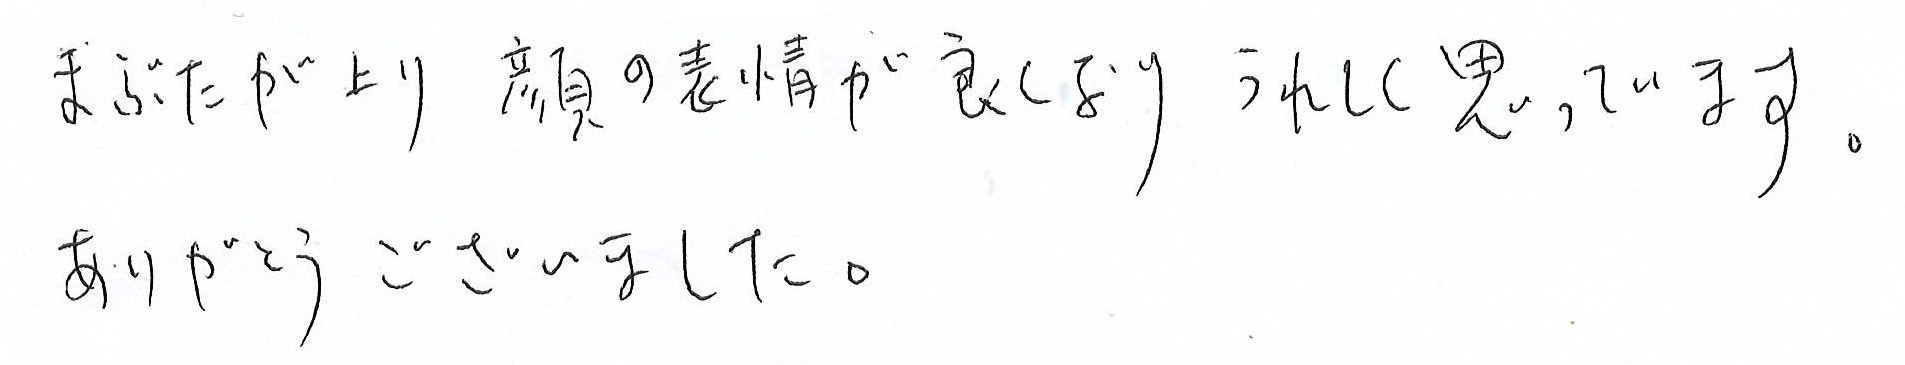 まぶたが上り 顔の表情が良くなり うれしく思っています。
ありがとう ございました。